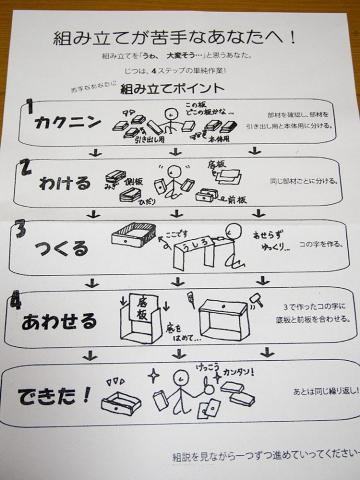 組み立てが苦手なあなたへ！
組み立てを「うわ、 大変そう…」と思うあなた。
じつは、4ステップの単純作業！
苦手なあなたに
組み立てポイント
1
カクニン
この板
どこの板かな…
引き出し用
本体用
部材を確認し、部材を
引き出し用と本体用に分ける。
2
わける
みぎ
側板
ひだり
底板
前板
同じ部材ごとに分ける。
3
つくる
ここです
うしろ
あせらず
ゆっくり…
コの字を作る。
4
あわせる
底板
底を
はめて…
3で作ったコの字に
底板と前板を合わせる。
できた！
けっこう
カンタン！
あとは同じ繰り返し！
組説を見ながら一つずつ進めていってください